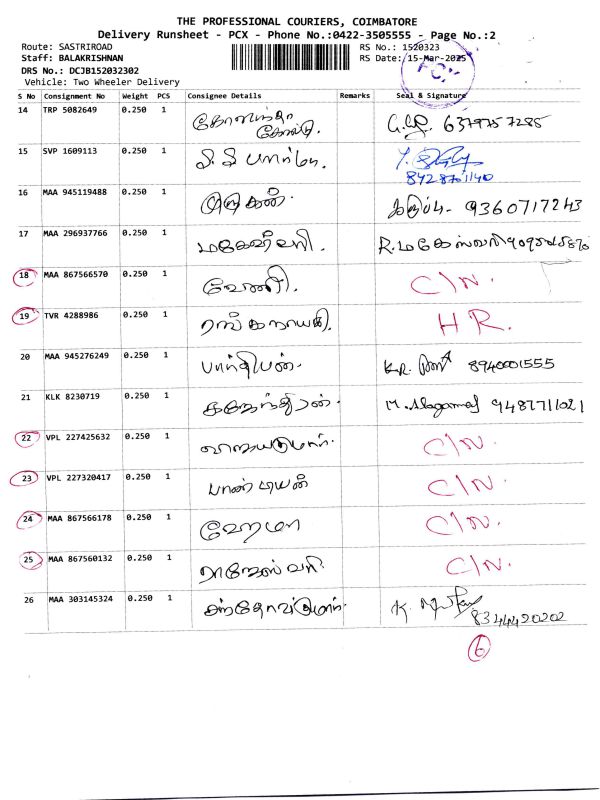 THE PROFESSIONAL COURIERS, COIMBATORE
Delivery Runsheet - PCX - Phone No.:0422-3505555 - Page No.:2
Route: SASTRIROAD RS No.: 1520323
Staff: BALAKRISHNAN RS Date: 15-Mar-2025
DRS No.: DCJB152032302
Vehicle: Two Wheeler Delivery
S No Consignment No Weight PCS Consignee Details Remarks Seal & Signature
14 TRP 5082649 0.250 1 6379757285
15 SVP 1609113 0.250 1 S. S பார்மே.
8428701140
16 MAA 945119488 0.250 1 முருகன். 9360717243
17 MAA 296937766 0.250 1 மகேஸ்வரி. R. மகேஸ்வரி
18 MAA 867566570 0.250 1 வேணி. C/N.
19 TVR 4288986 0.250 1 ரங்கநாயகி. H R.
20 MAA 945276249 0.250 1 பார்த்திபன். K.R. 8940001555
21 KLK 8230719 0.250 1 கஜேந்திரன். M. Alagammal 9487711021
22 VPL 227425632 0.250 1 விஜயகுமார். C/N.
23 VPL 227320417 0.250 1 பாண்டியன் C/N.
24 MAA 867566178 0.250 1 ஹேமா C/N.
25 MAA 867560132 0.250 1 ராஜேஸ்வரி C/N.
26 MAA 303145324 0.250 1 சந்தோஷ்குமார். K.
8344420202
6